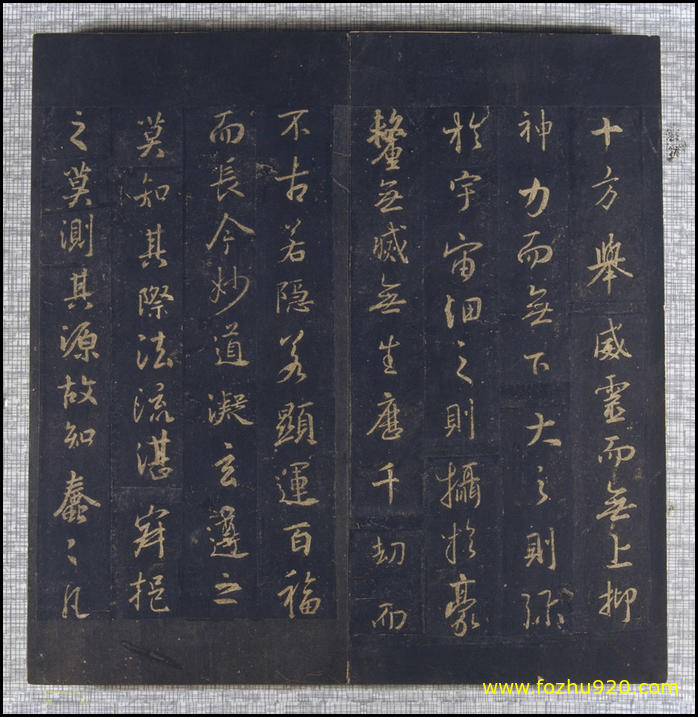 十方舉威靈而無上抑
神力而無下大之則弥
於宇宙細之則攝於豪
釐無滅無生歷千劫而
不古若隱若顯運百福
而長今妙道凝玄遵之
莫知其際法流湛寂挹
之莫測其源故知蠢々凡
www.fozhu920.com